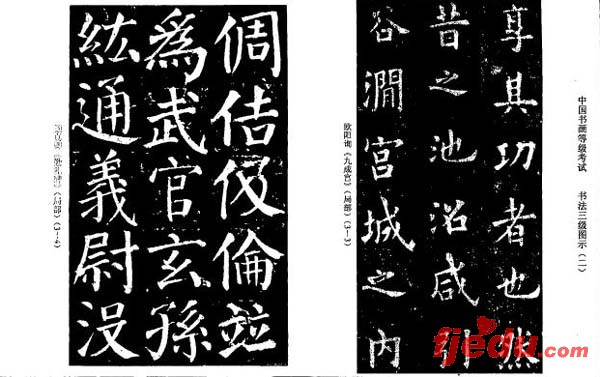 中国书画等级考试 书法三级图示(二)
享其功者也然
昔之池沼咸引
谷澗宮城之内
欧阳询《九成宫》(局部)(3—3)
倜佶伋倫竝
爲武官玄孫
紘通義尉没
(局部)(3—4)
fjedu.com